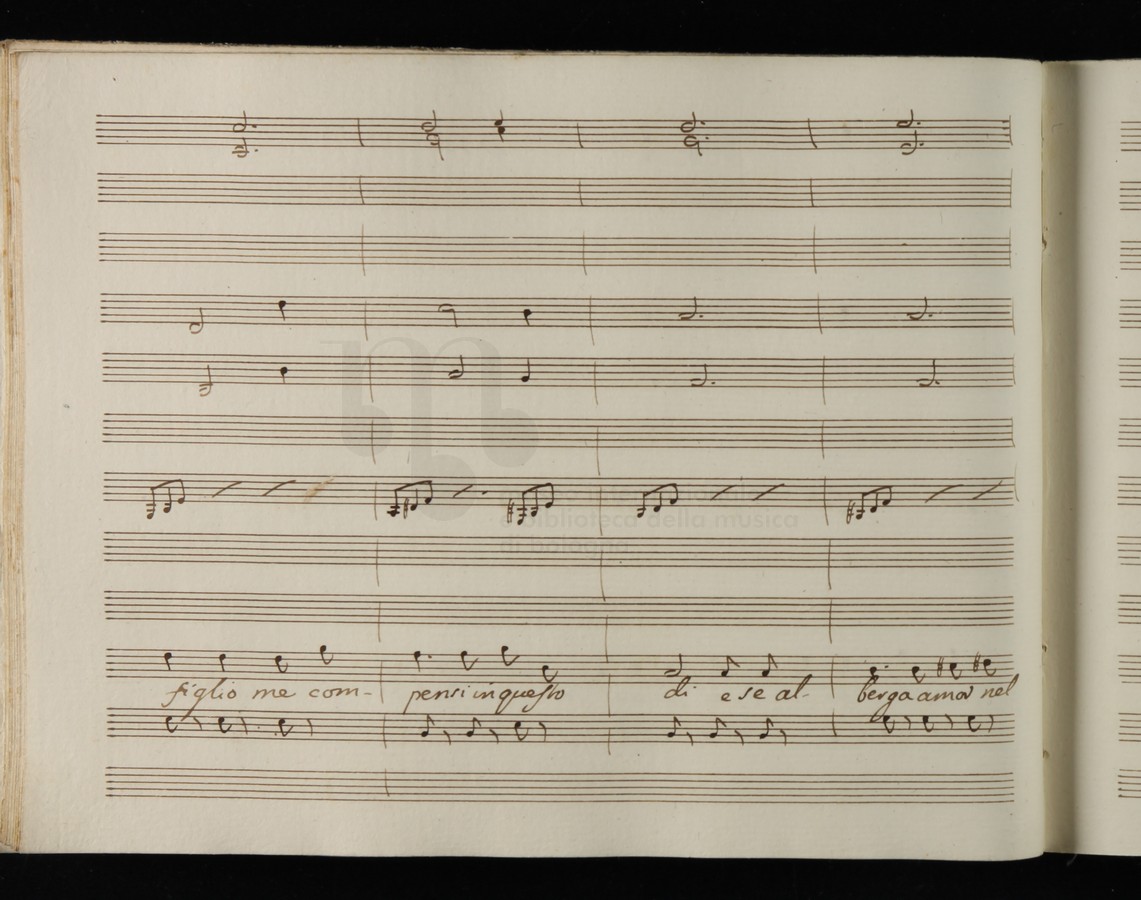 figlio me com- pensi in questo di e se al- berga amor nel
museo internazionale
e biblioteca della musica
di bologna